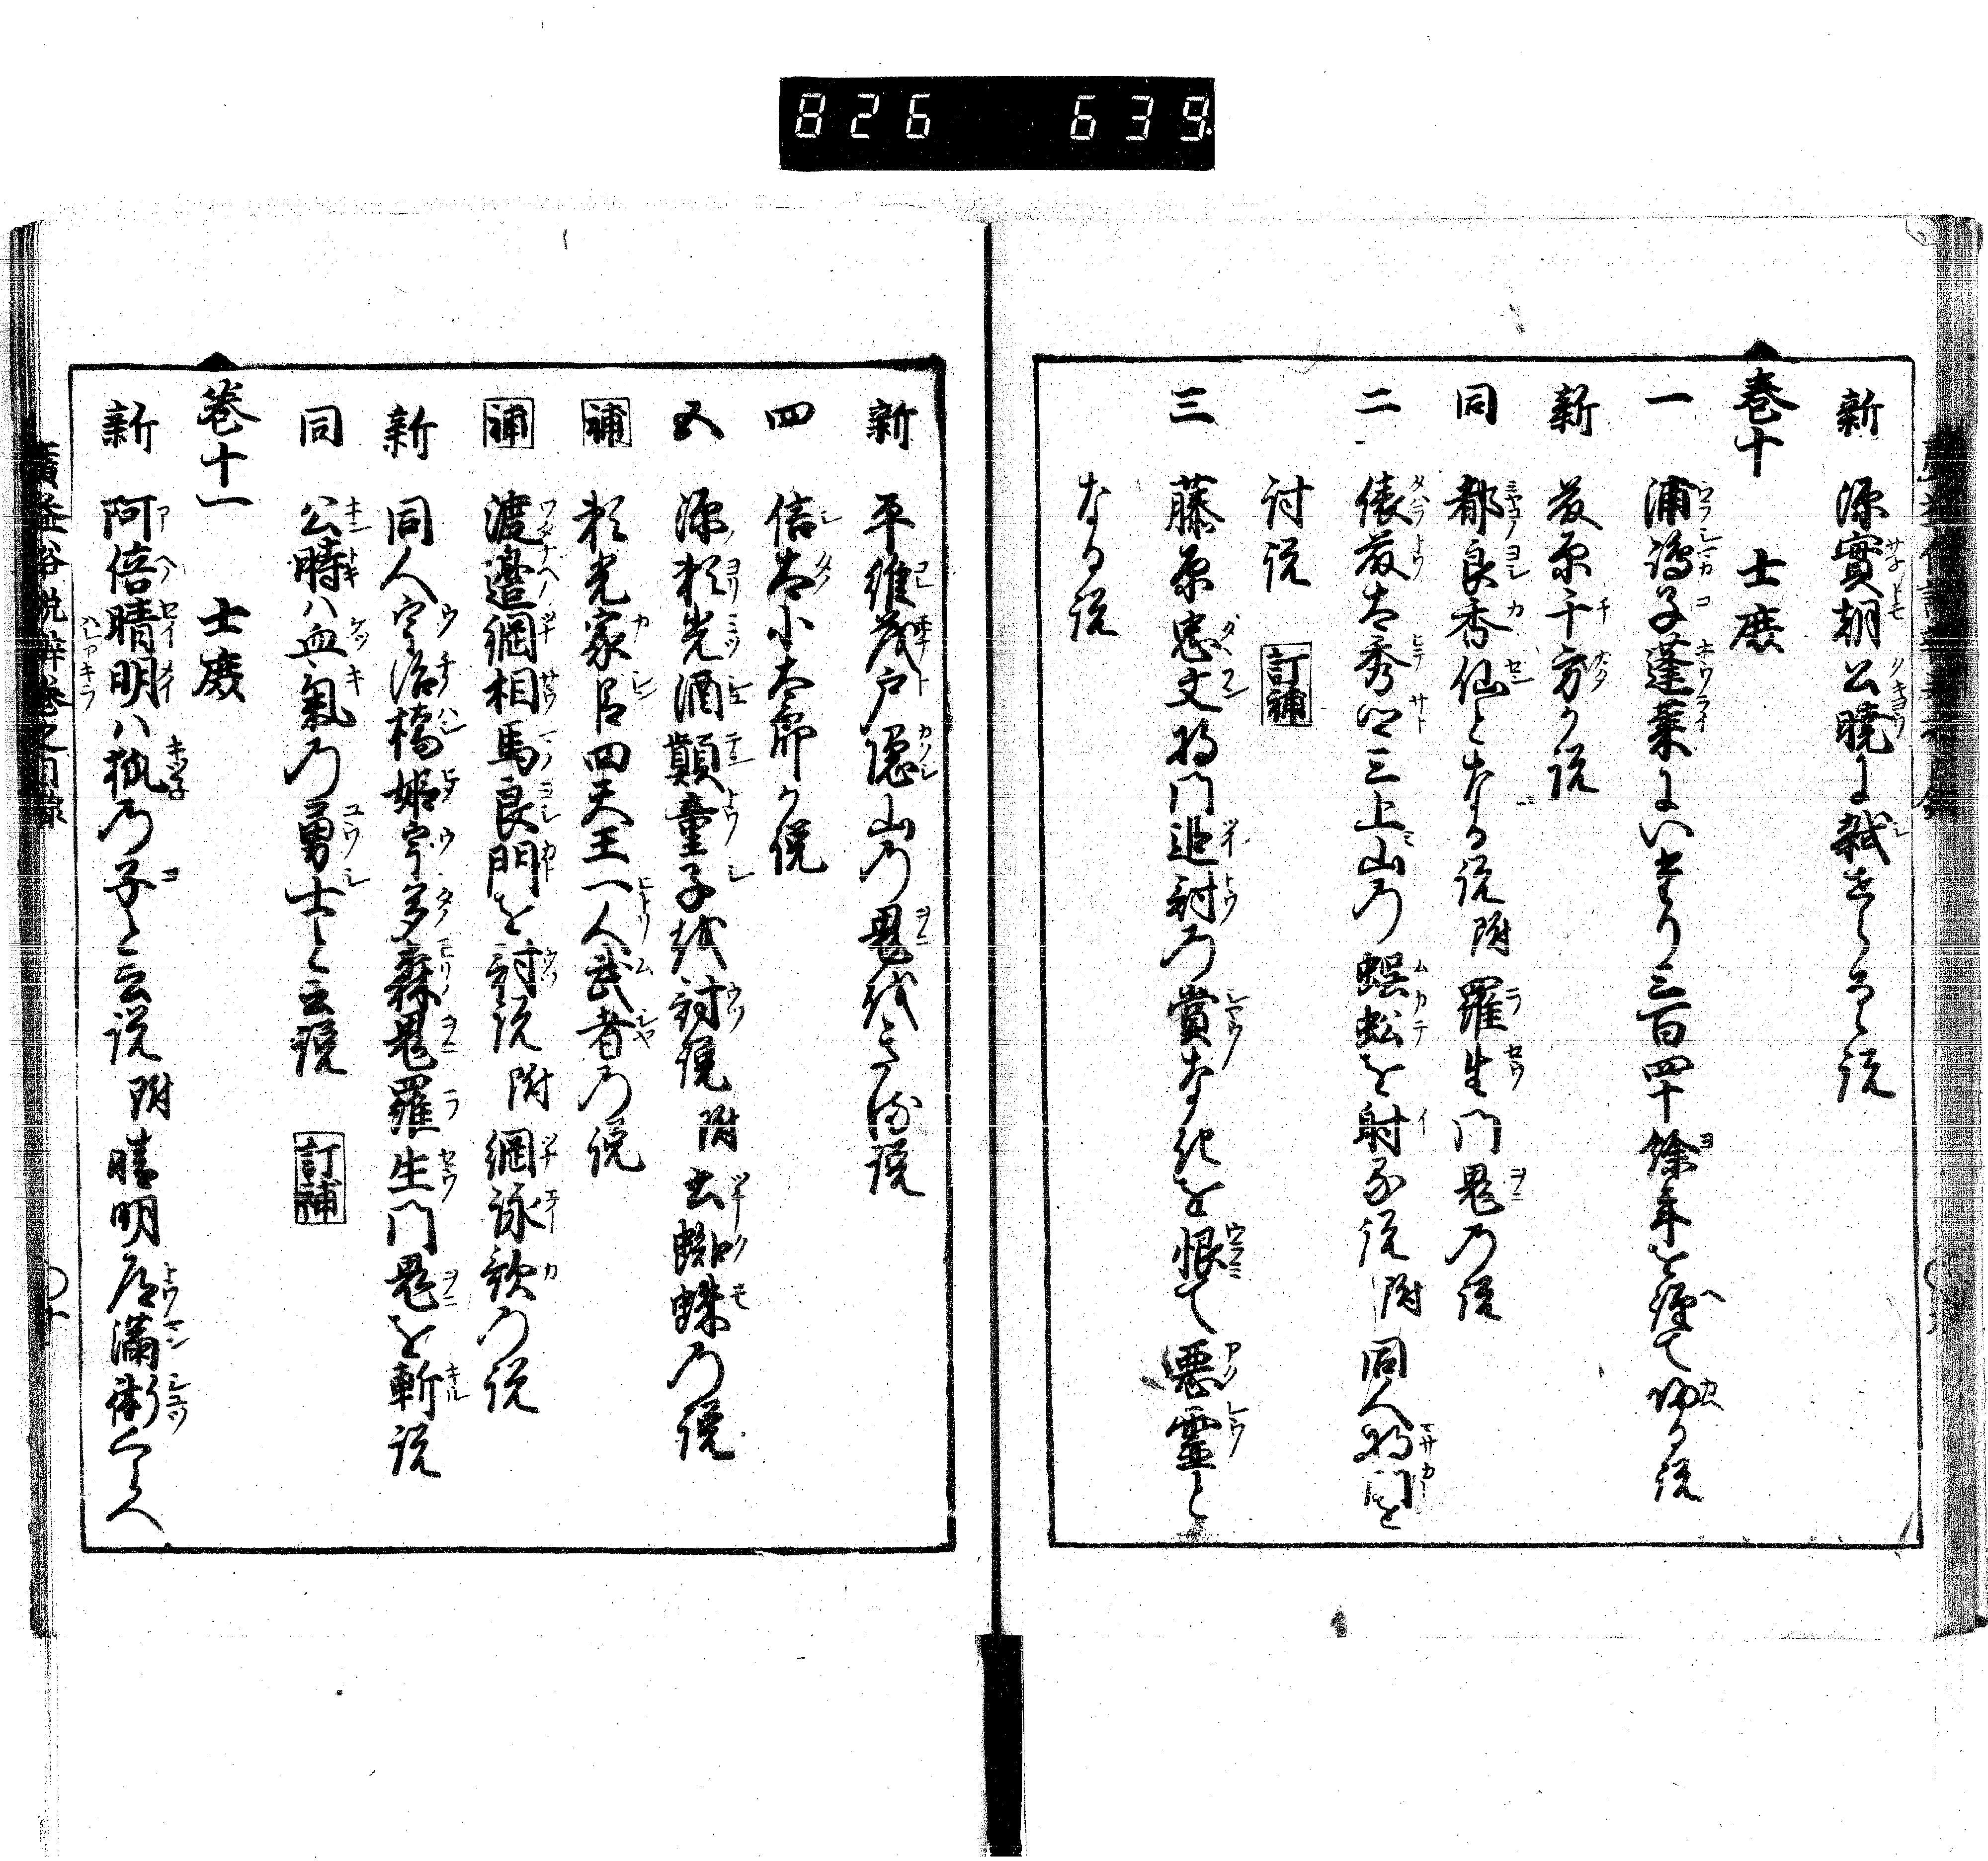 826 639
新 源實朝公暁に弑せらるゝ説
巻十 士庶
一 浦嶋子蓬莱にいたり三百四十餘年を経て帰る説
新 藤原千方が説
同 都良香仙となる説 附 羅生門鬼の説
二 俵藤太秀郷三上山の蜈蚣を射る説 附 同人将門を
討説 訂補
三 藤原忠文将門追討の賞なきを恨て悪霊と
なる説
新 平維茂戸隠山の鬼を
四 信太小太郎が説
五 源頼光酒顚童子を討説 附 土蜘蛛の説
補 頼光家臣四天王一人武者の説
補 渡邉綱相馬良門を討説 附 綱詠歌の説
新 同人宇治橋姫宇多森鬼羅生門鬼を斬説
同 公時ハ血氣の勇士と云説 訂補
巻十一 士庶
新 阿倍晴明ハ狐の子と云説 附 晴明道滿術くらべ
廣益俗説辨巻之目録